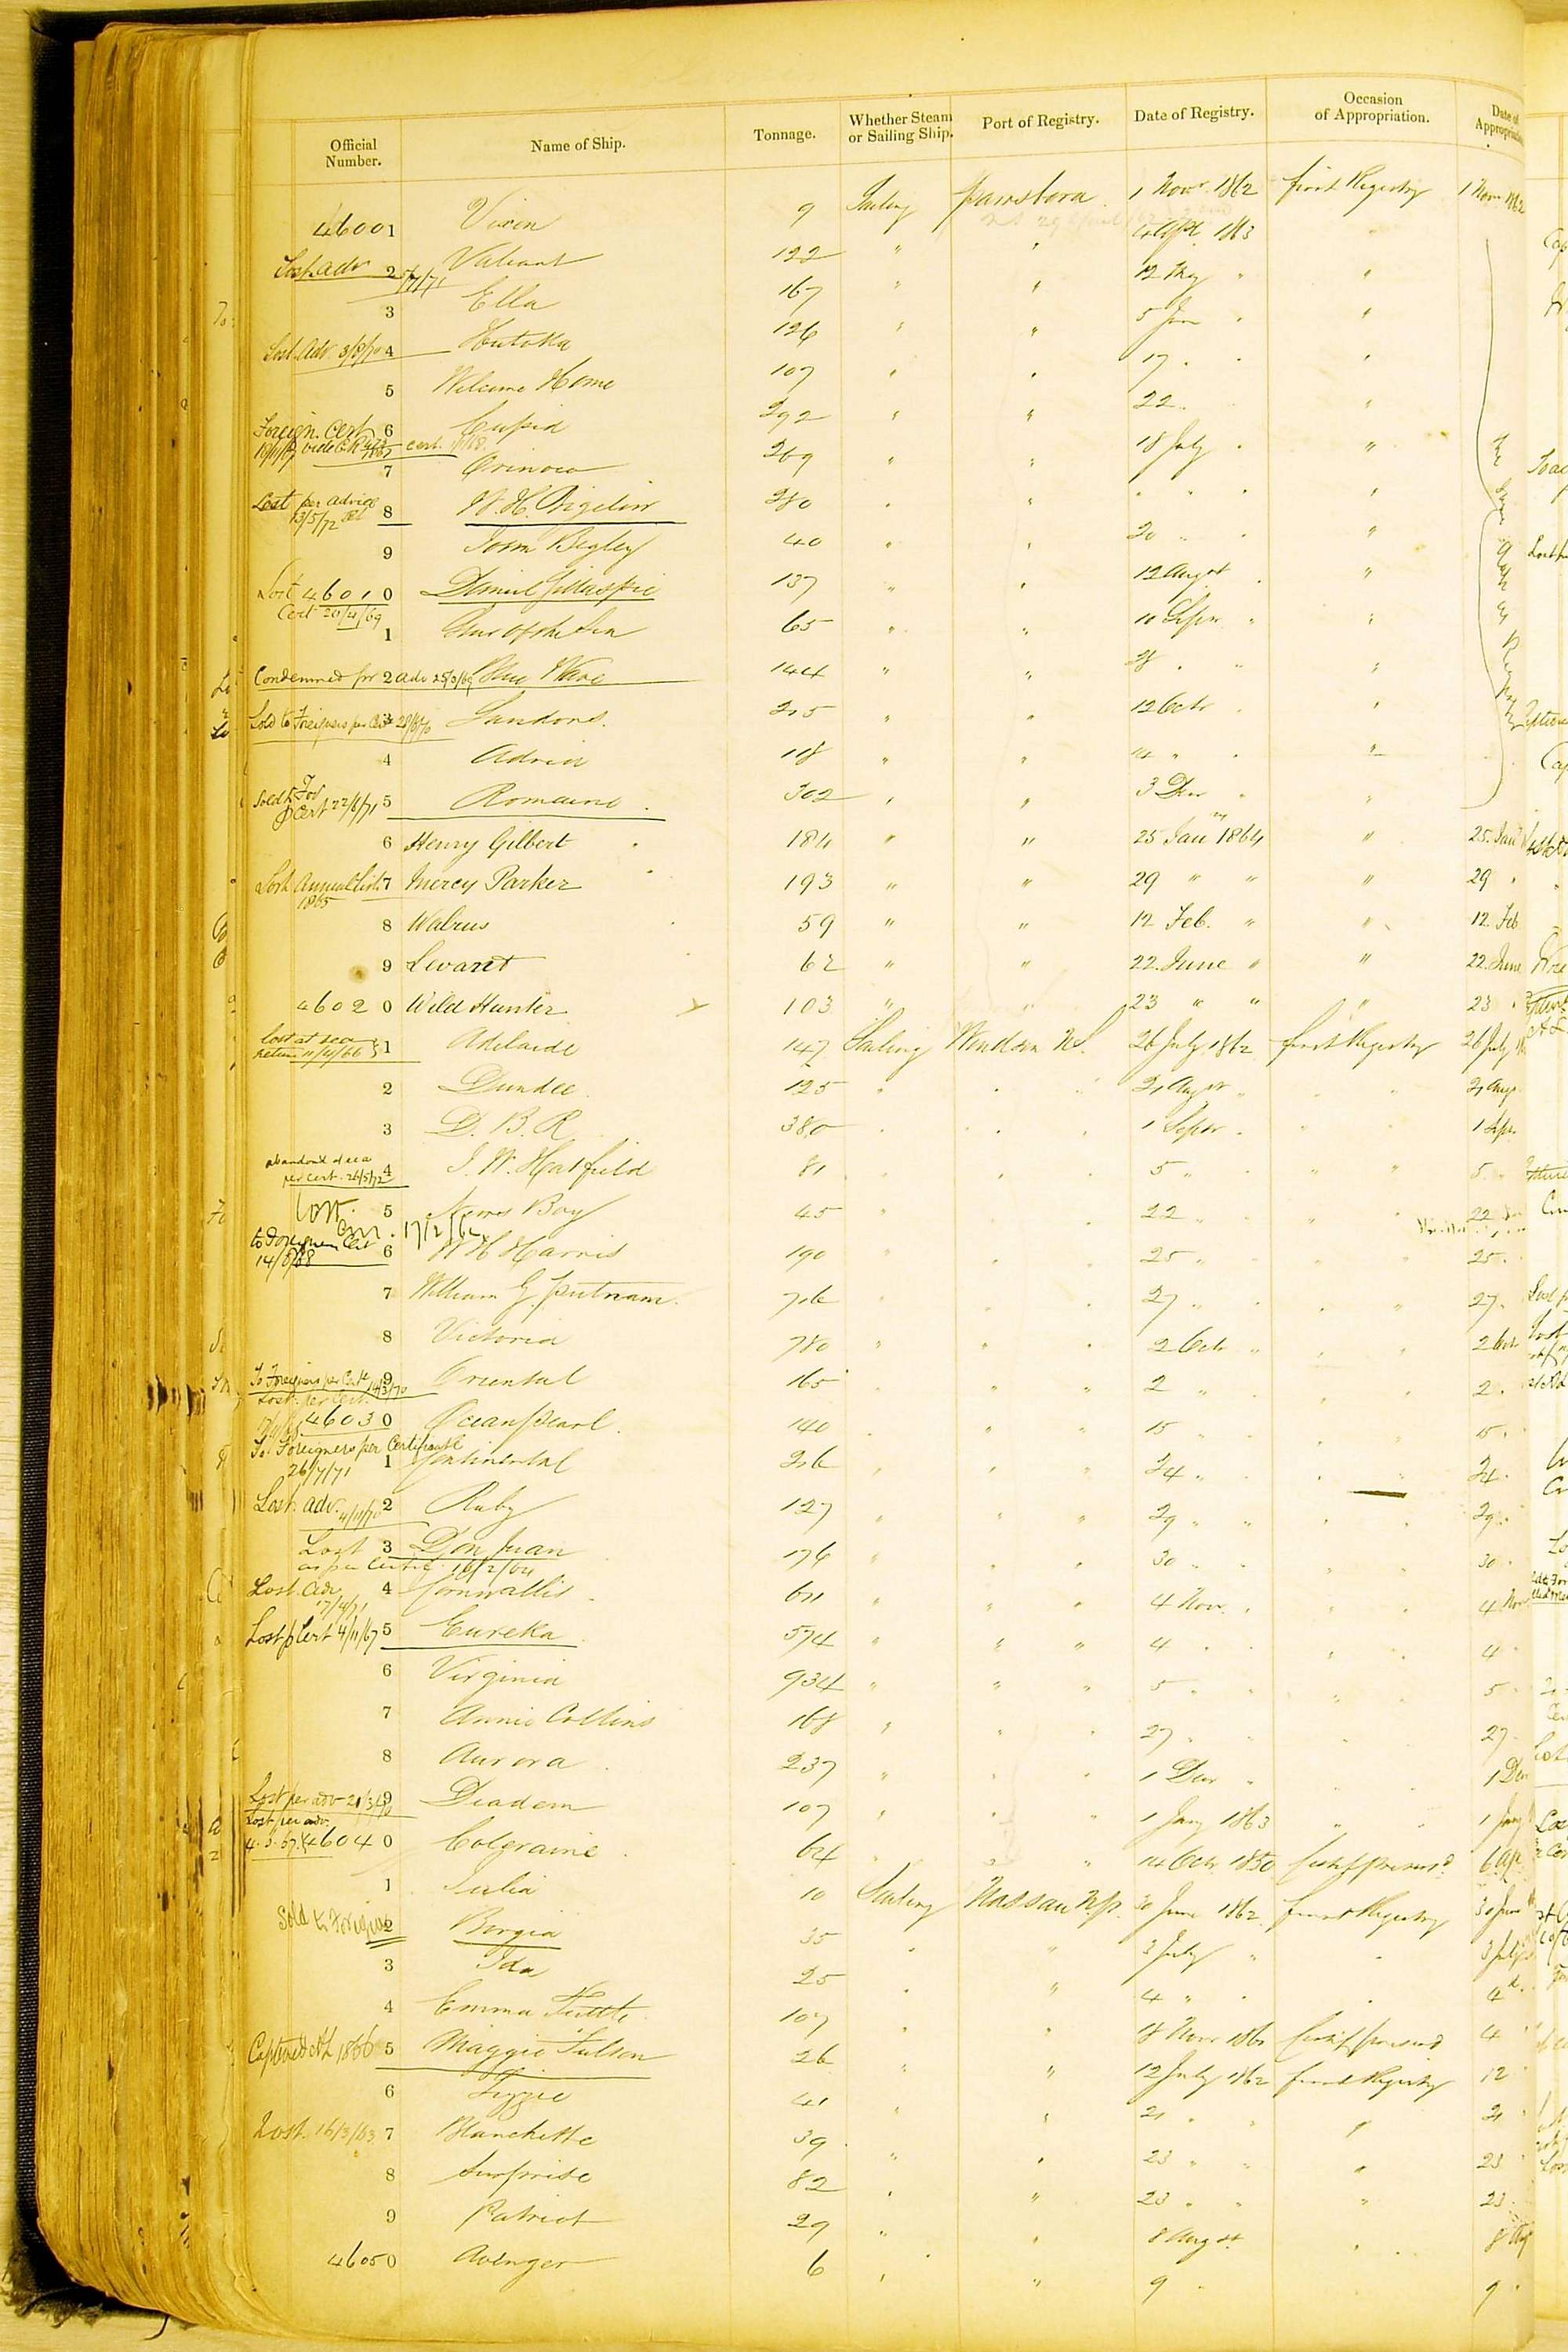 Official Number. Name of Ship. Tonnage. Whether Steam or Sailing Ship. Port of Registry. Date of Registry. Occasion of Appropriation. Date of Appropriation
46001 Vixen 9 Sailing Parrsboro 1 Novr 1862 first Registry 1 Nov 1862
Lost adv 2 Valiant 122 " " 4 Apl 1863 "
3 Ella 167 " " 12 May " "
Lost Adv 3/8/70 4 126 " " 5 Jun " "
5 Welcome Home 107 " " 17 " " "
Foreign Cert 6 Cupid 292 " " 22 " "
7 Orinoco 269 " " 18 July " "
Lost per Advice 13/5/72 8 W. H. Bigelow 280 " " " " " "
9 John Begley 40 " " 20 " " "
Lost 46010 Daniel Gillaspie 137 " " 12 Augst " "
Cert 20/4/69
1 Star of the Sea 65 " " 10 Sepr " "
Condemned pr 2 adv Blue Wave 144 " " 28 " " "
Sold to Foreigners per Cert 3 215 " " 12 Octr " "
4 Adria 118 " " 14 " " "
Sold to For p Cert 22/6/71 5 Romaine 302 " " 3 Decr " "
6 Henry Gilbert 184 " " 25 Jany 1864 " 25 Jany
Lost Annual List 1865 7 Mercy Parker 193 " " 29 " " " 29 "
8 Walrus 59 " " 12 Feb. " " 12 Feb
9 Levant 62 " " 22 June " " 22 June
46020 Wild Hunter 103 " " 23 " " " 23 "
lost at sea return 11/4/66 1 Adelaide 147 Sailing Windsor N.S. 26 July 1862 first Registry 26 July
2 Dundee 125 " " " 21 Augst " " " 21 Aug
3 D. B. R. 380 " " " 1 Sepr " " " 1 Sepr
abandoned at sea per cert. 26/5/72 4 J. W. Hatfield 81 " " " 5 " " " " 5 "
lost 5 News Boy 45 " " " 22 " " " " 22
to Foreigners Cert 14/5/68 6 W H Harris 190 " " " 25 " " " " 25 "
7 William G. Putnam 716 " " " 27 " " " " 27 "
8 Victoria 780 " " " 2 Octr " " " 2 Octr
To Foreigners per Certe 14/3/70 9 Oriental 165 " " " 2 " " " " 2 "
Lost per Cert. 46030 Ocean Pearl 140 " " " 15 " " " " 15 "
To Foreigners per Certificate 26/7/71 1 Continental 216 " " " 24 " " " " 24 "
Lost adv. 4/11/70 2 Ruby 127 " " " 29 " " " " 29 "
Lost 3 Don Juan 176 " " " 30 " " " " 30 "
as per Certe 16/2/64
Lost Adv 17/4/71 4 Cornwallis 611 " " " 4 Nov. " " " 4 Nov
Lost p Cert 4/11/67 5 Eureka 574 " " " 4 " " " " 4 "
6 Virginia 934 " " " 5 " " " " 5 "
7 Annie Collins 168 " " " 27 " " " " 27 "
8 Aurora 237 " " " 1 Decr " " " 1 Decr
Lost per adv 9 Diadem 107 " " " 1 Jany 1863 " " 1 Jany
Lost per adv. 4.3.67 46040 Coleraine 64 " " " 14 Octr 1850 6 Apl
1 Julia 10 Sailing Nassau N.P. 30 June 1862 first Registry 30 June
Sold to Foreigners 2 Borgia 35 " " 3 July " " 3 July
3 Ida 25 " " 4 " " " 4
4 Emma Tuttle 107 " " 18 Novr 4 "
Captured 1866 5 Maggie Fulton 26 " " 12 July 1862 first Registry 12 "
6 Lizzie 41 " " 21 " " " 21 "
Lost 16/3/63 7 Blanchette 39 " " 23 " " " 23 "
8 Surprise 82 " " 23 " " " 23 "
9 Patriot 29 " " 8 Augst " 8 Aug
46050 Avenger 6 " " 9 " 9 "